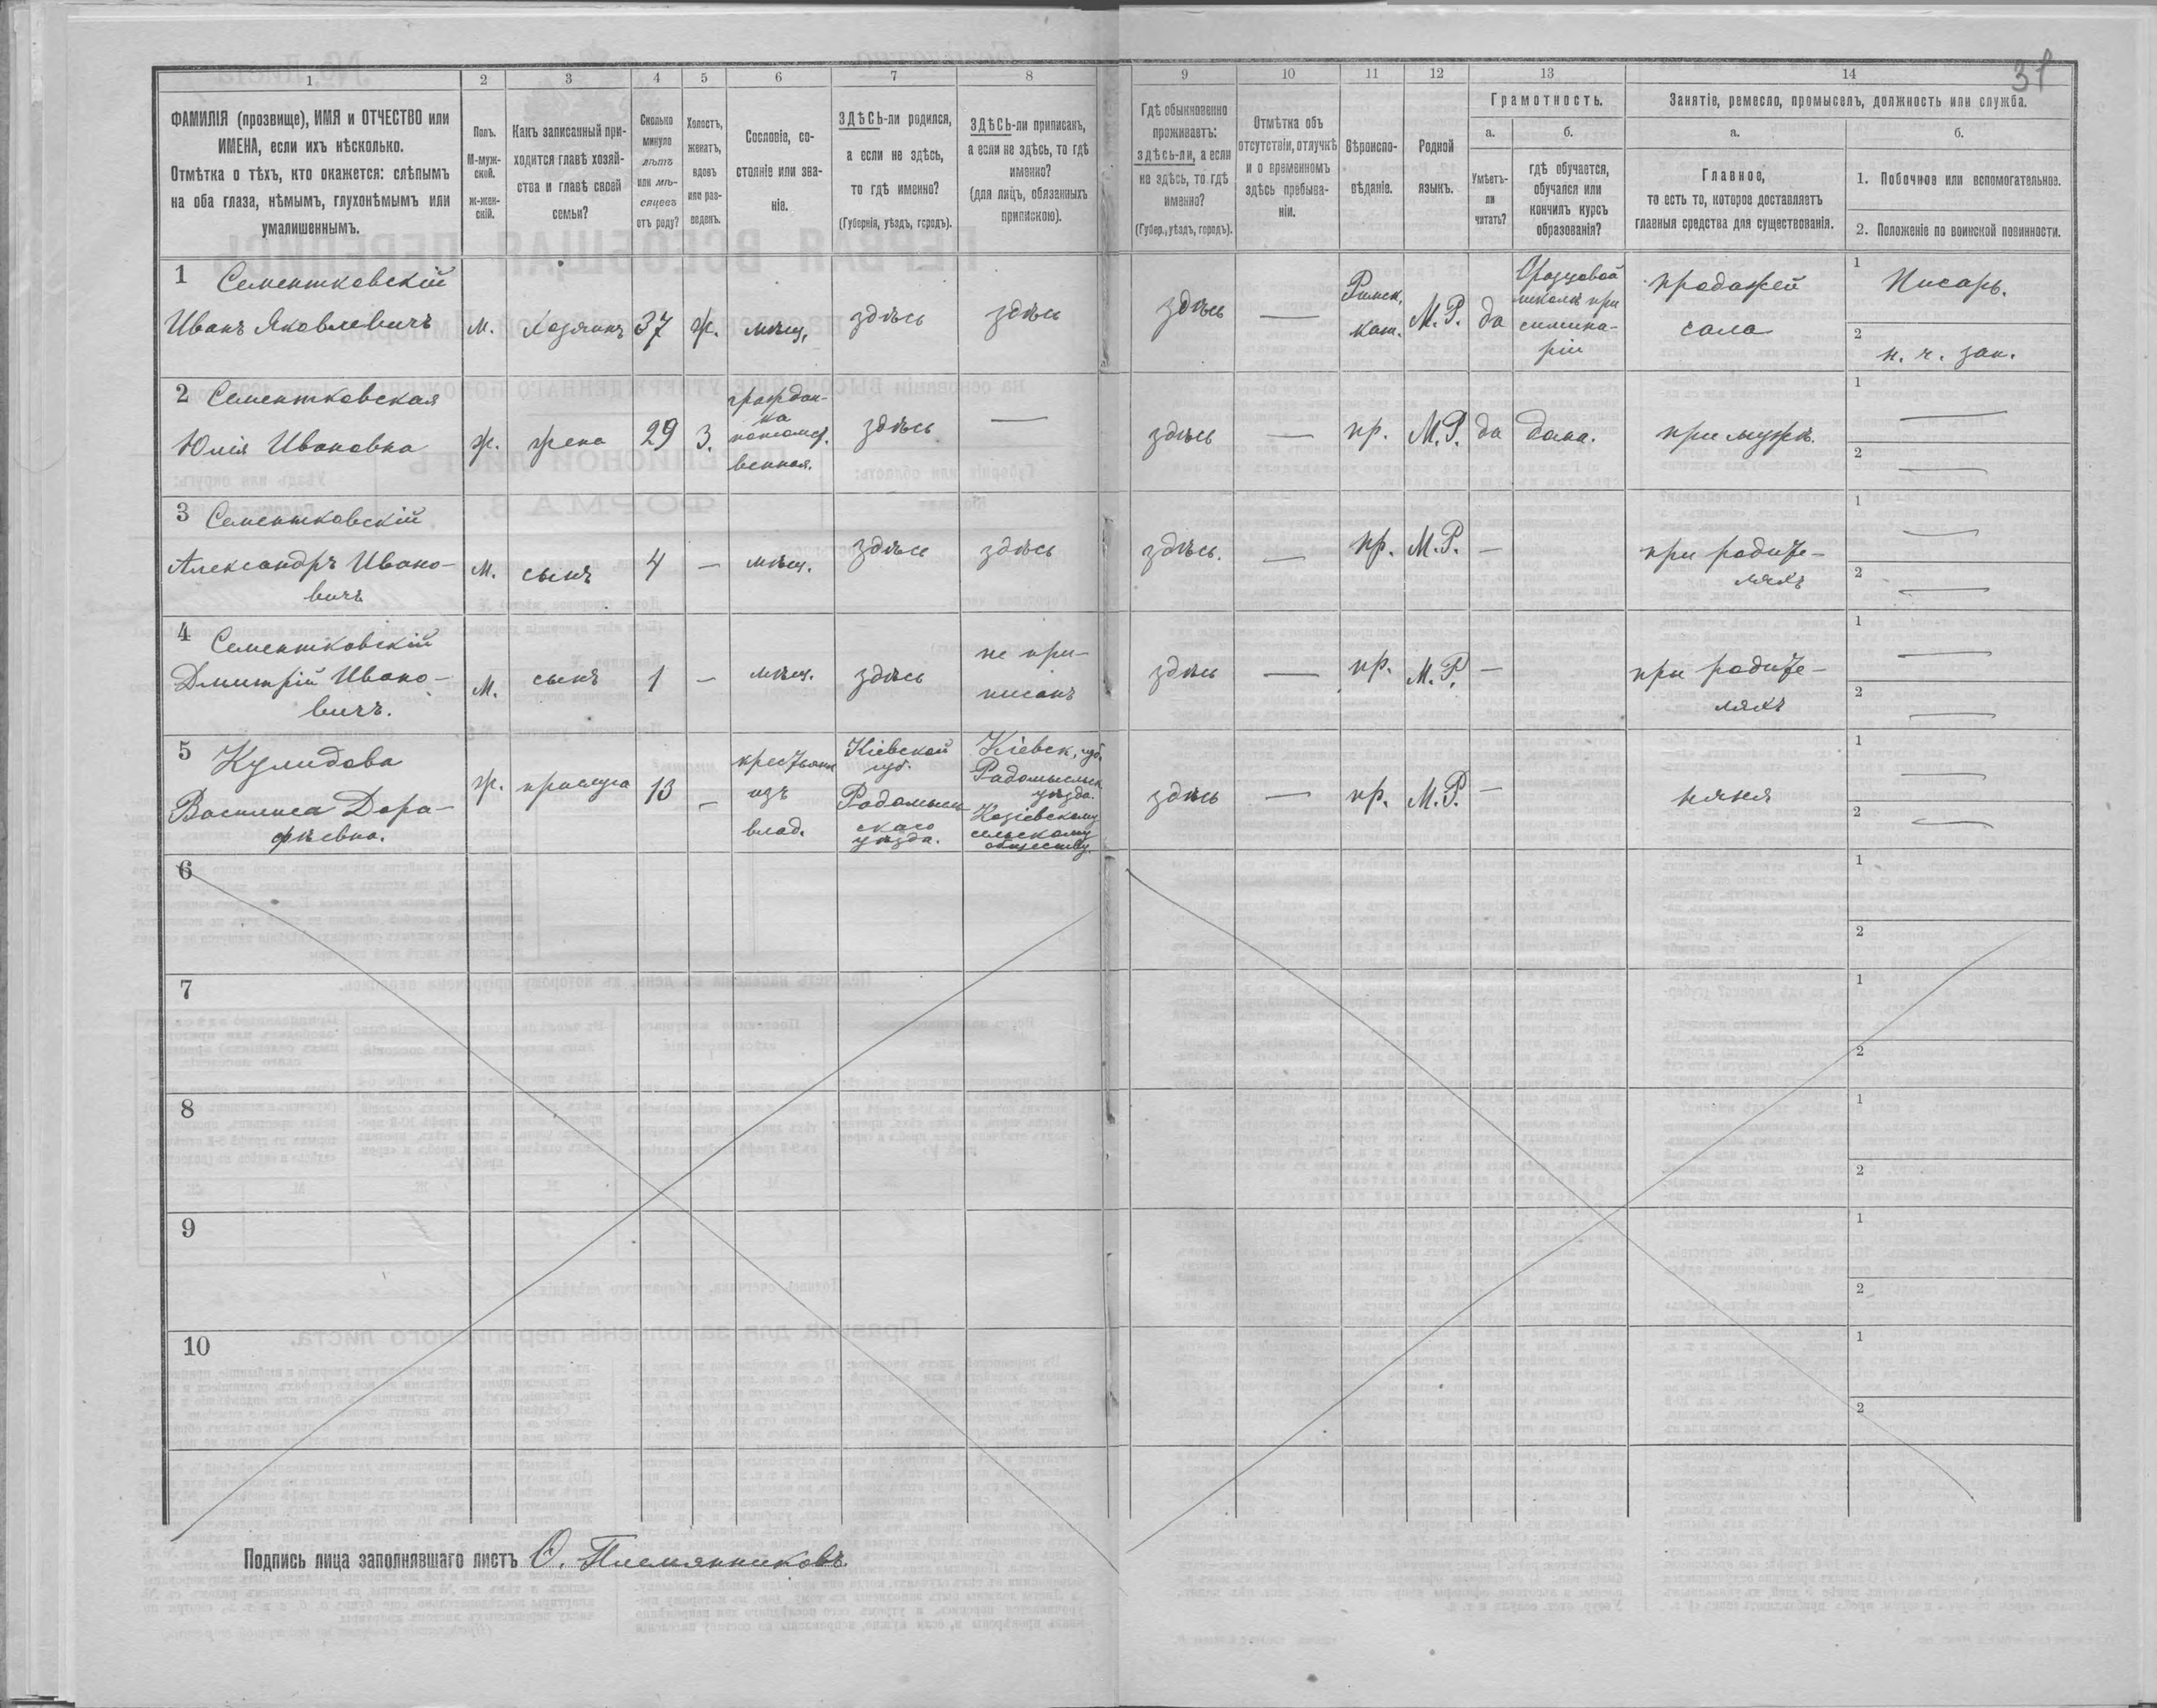 31
1 2 3 4 5 6 7 8 9 10 11 12 13 14
ФАМИЛІЯ (прозвище), ИМЯ и ОТЧЕСТВО или
ИМЕНА, если ихъ нѣсколько.
Отмѣтка о тѣхъ, кто окажется: слѣпымъ
на оба глаза, нѣмымъ, глухонѣмымъ или
умалишеннымъ.
Полъ.
М-муж-
ской.
ж-жен-
скій.
Какъ записанный при-
ходится главѣ хозяй-
ства и главѣ своей
семьи?
Сколько
минуло
лѣтъ
или мѣ-
сяцевъ
отъ роду?
Холостъ,
женатъ,
вдовъ
или раз-
веденъ.
Сословіе, со-
стояніе или зва-
ніе.
ЗДѢСЬ-ли родился,
а если не здѣсь,
то гдѣ именно?
(Губернія, уѣздъ, городъ).
ЗДѢСЬ-ли приписанъ,
а если не здѣсь, то гдѣ
именно?
(для лицъ, обязанныхъ
припискою).
Гдѣ обыкновенно
проживаетъ:
здѣсь-ли, а если
не здѣсь, то гдѣ
именно?
(Губер., уѣздъ, городъ).
Отмѣтка объ
отсутствіи, отлучкѣ
и о временномъ
здѣсь пребыва-
ніи.
Вѣроиспо-
вѣданіе.
Родной
языкъ.
Грамотность.
а.
Умѣетъ-
ли
читать?
б.
гдѣ обучается,
обучался или
кончилъ курсъ
образованія?
Занятіе, ремесло, промыселъ, должность или служба.
а.
Главное,
то есть то, которое доставляетъ
главныя средства для существованія.
б.
1. Побочное или вспомогательное.
2. Положеніе по воинской повинности.
1 Сементковскій
Иванъ Яковлевичъ
м.
Хозяинъ
37
ж.
мѣщ.
здѣсь
здѣсь
здѣсь
—
Римск.
кат.
М.Р.
да
Образцовой
школѣ при
семина-
ріи
продажей
сала
1 Писарь.
2 н. ч. зап.
2 Сементковская
Юлія Ивановна
ж.
жена
29
з.
граждан-
ка
потомст.
венная.
здѣсь
—
здѣсь
—
пр.
М.Р.
да
дома.
при мужѣ.
1 —
2 —
3 Сементковскій
Александръ Ивано-
вичъ
м.
сынъ
4
—
мѣщ.
здѣсь
здѣсь
здѣсь.
—
пр.
М.Р.
—
при родите-
ляхъ
1 —
2 —
4 Сементковскій
Дмитрій Ивано-
вичъ.
м.
сынъ
1
—
мѣщ.
здѣсь
не при-
писанъ
здѣсь
—
пр.
М.Р.
—
при родите-
ляхъ
1 —
2 —
5 Кулидова
Василиса Доро-
фѣевна.
ж.
прислуга
13
—
крестьян.
изъ
влад.
Кіевской
губ.
Радомысль-
скаго
уѣзда.
Кіевск. губ.
Радомысльск.
уѣзда.
сельскому
обществу.
здѣсь
—
пр.
М.Р.
—
няня
1 —
2 —
6
1
2
7
1
2
8
1
2
9
1
2
10
1
2
Подпись лица заполнявшаго листъ О. Племянниковъ